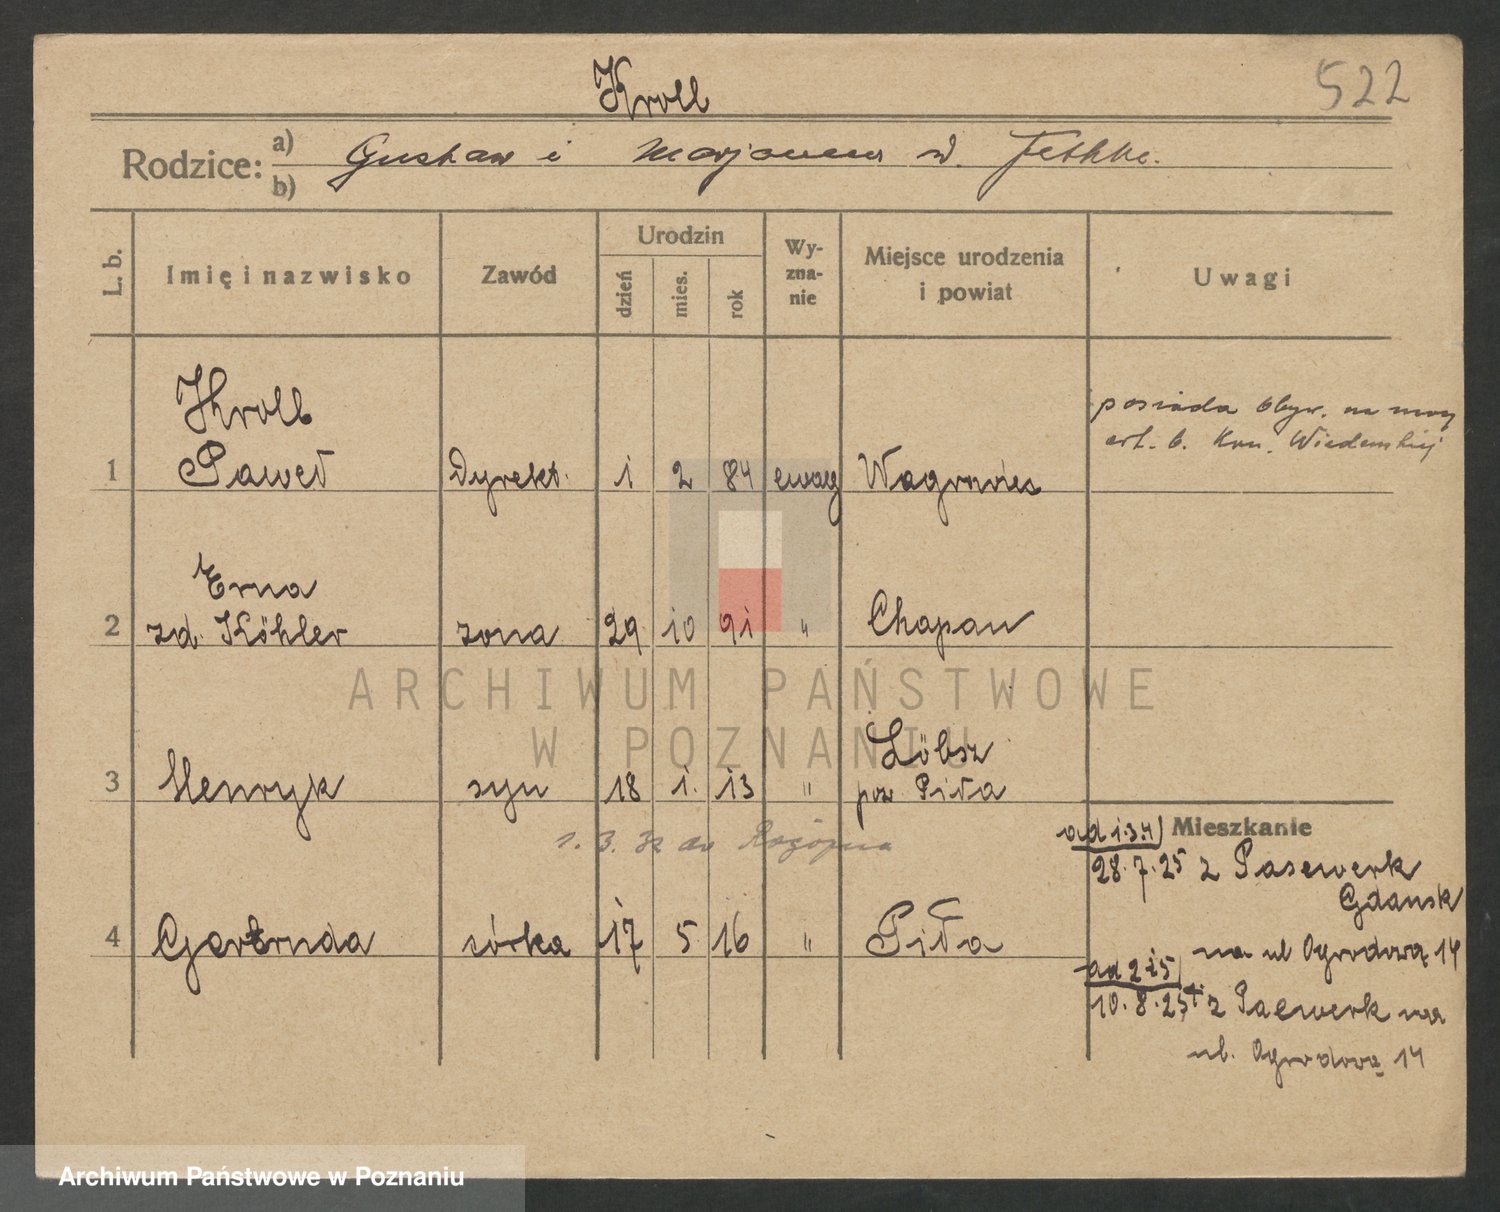 Kroll
522
Rodzice: a) Gustaw i Marjanna d. Fethke.
b)
L. b.
Imię i nazwisko
Zawód
Urodzin
dzień
mies.
rok
Wy-
zna-
nie
Miejsce urodzenia
i powiat
Uwagi
Kroll
1 Paweł Dyrekt. 1 2 84 ewag Wągrowiec
posiada obyw. na mocy
art. 6. Kon. Wiedeńskiej
Erna
2 zd. Köhler żona 29 10 91 " Chapau
Löbsz
3 Henryk syn 18 1. 13 " pow Piła
1. 3. 32 do
Mieszkanie
ad 1.3.4)
28.7.25 z Pasewerk
Gdańsk
4 Gertruda córka 17 5 16 " Piła
na ul Ogrodową 14
ad 2 i 5)
10.8.25 z Pasewerk na
ul. Ogrodową 14
ARCHIWUM PAŃSTWOWE
W POZNANIU
Archiwum Państwowe w Poznaniu